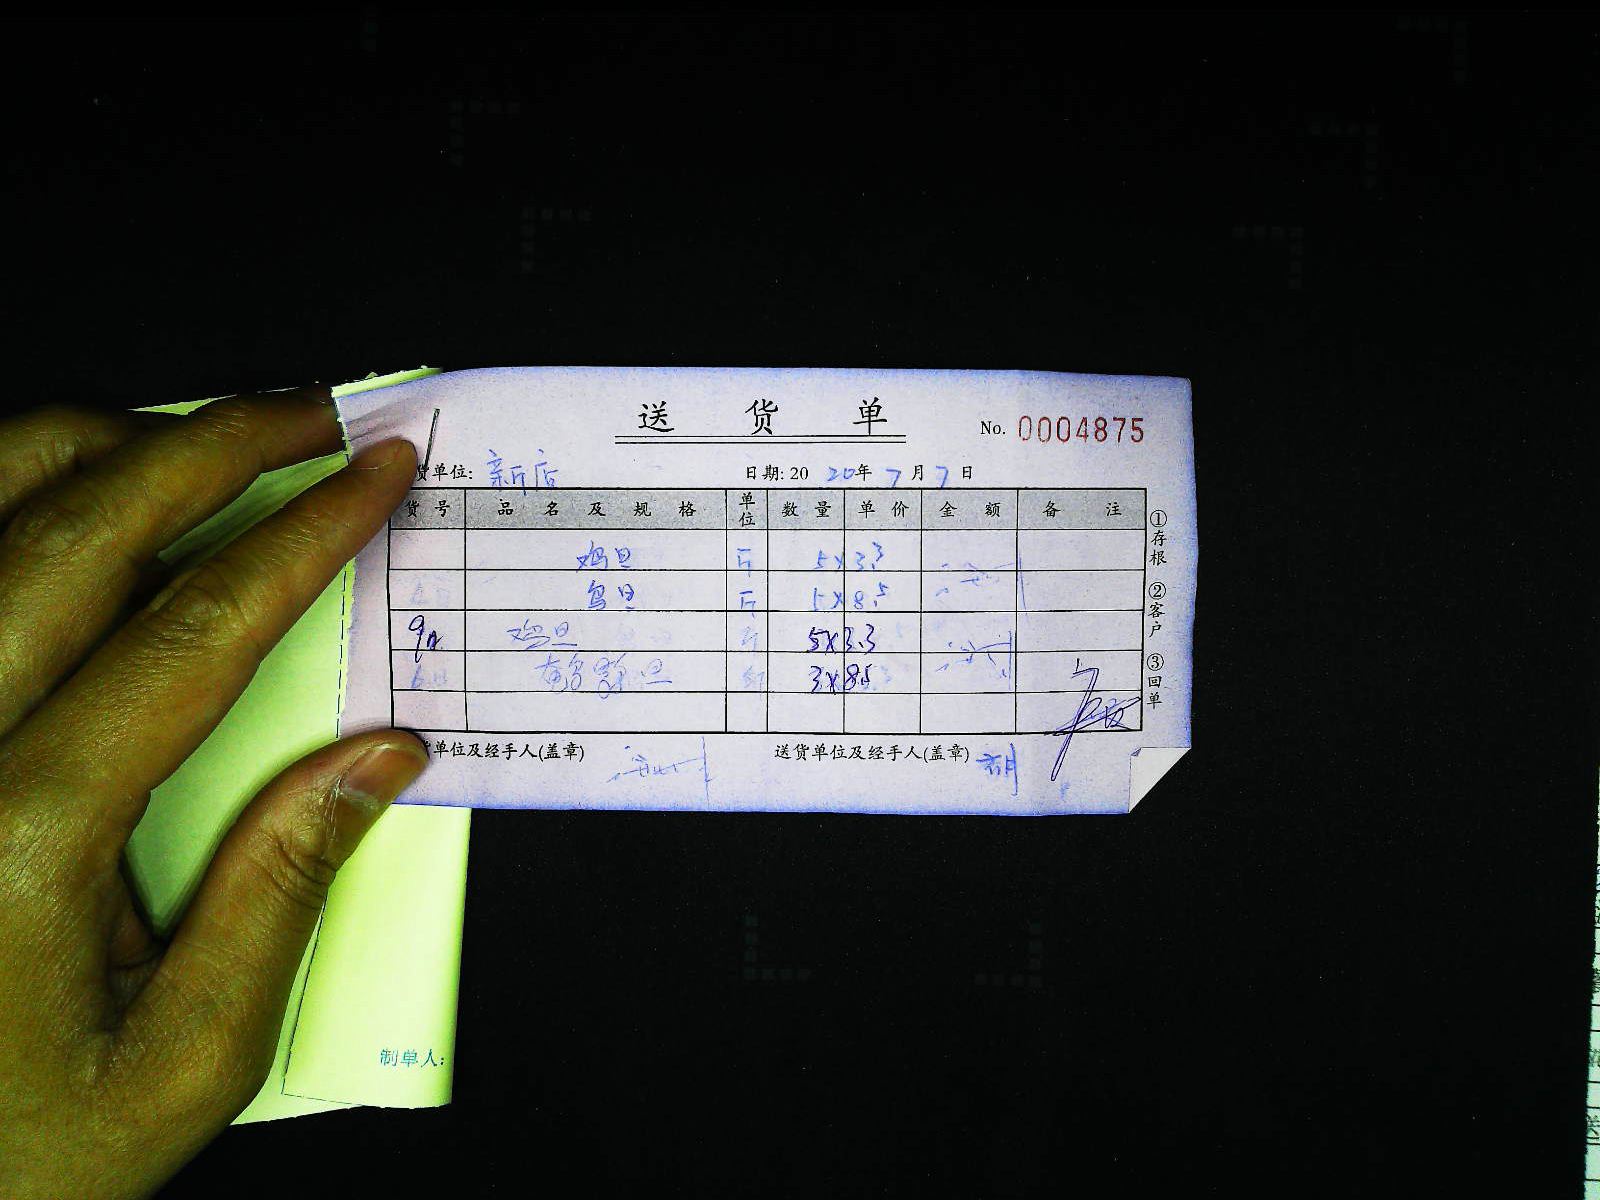 送 货 单
No. 0004875
货单位: 新店 日期: 20 20年 7月 7日
货号 品名及规格 单位 数量 单价 金额 备注
鸡旦 斤 5×3.3
鸟旦 斤 5×8.5
9日 鸡旦 斤 5×3.3
旦 斤 3×8.5
货单位及经手人(盖章) 送货单位及经手人(盖章) 胡
①存根 ②客户 ③回单
制单人: